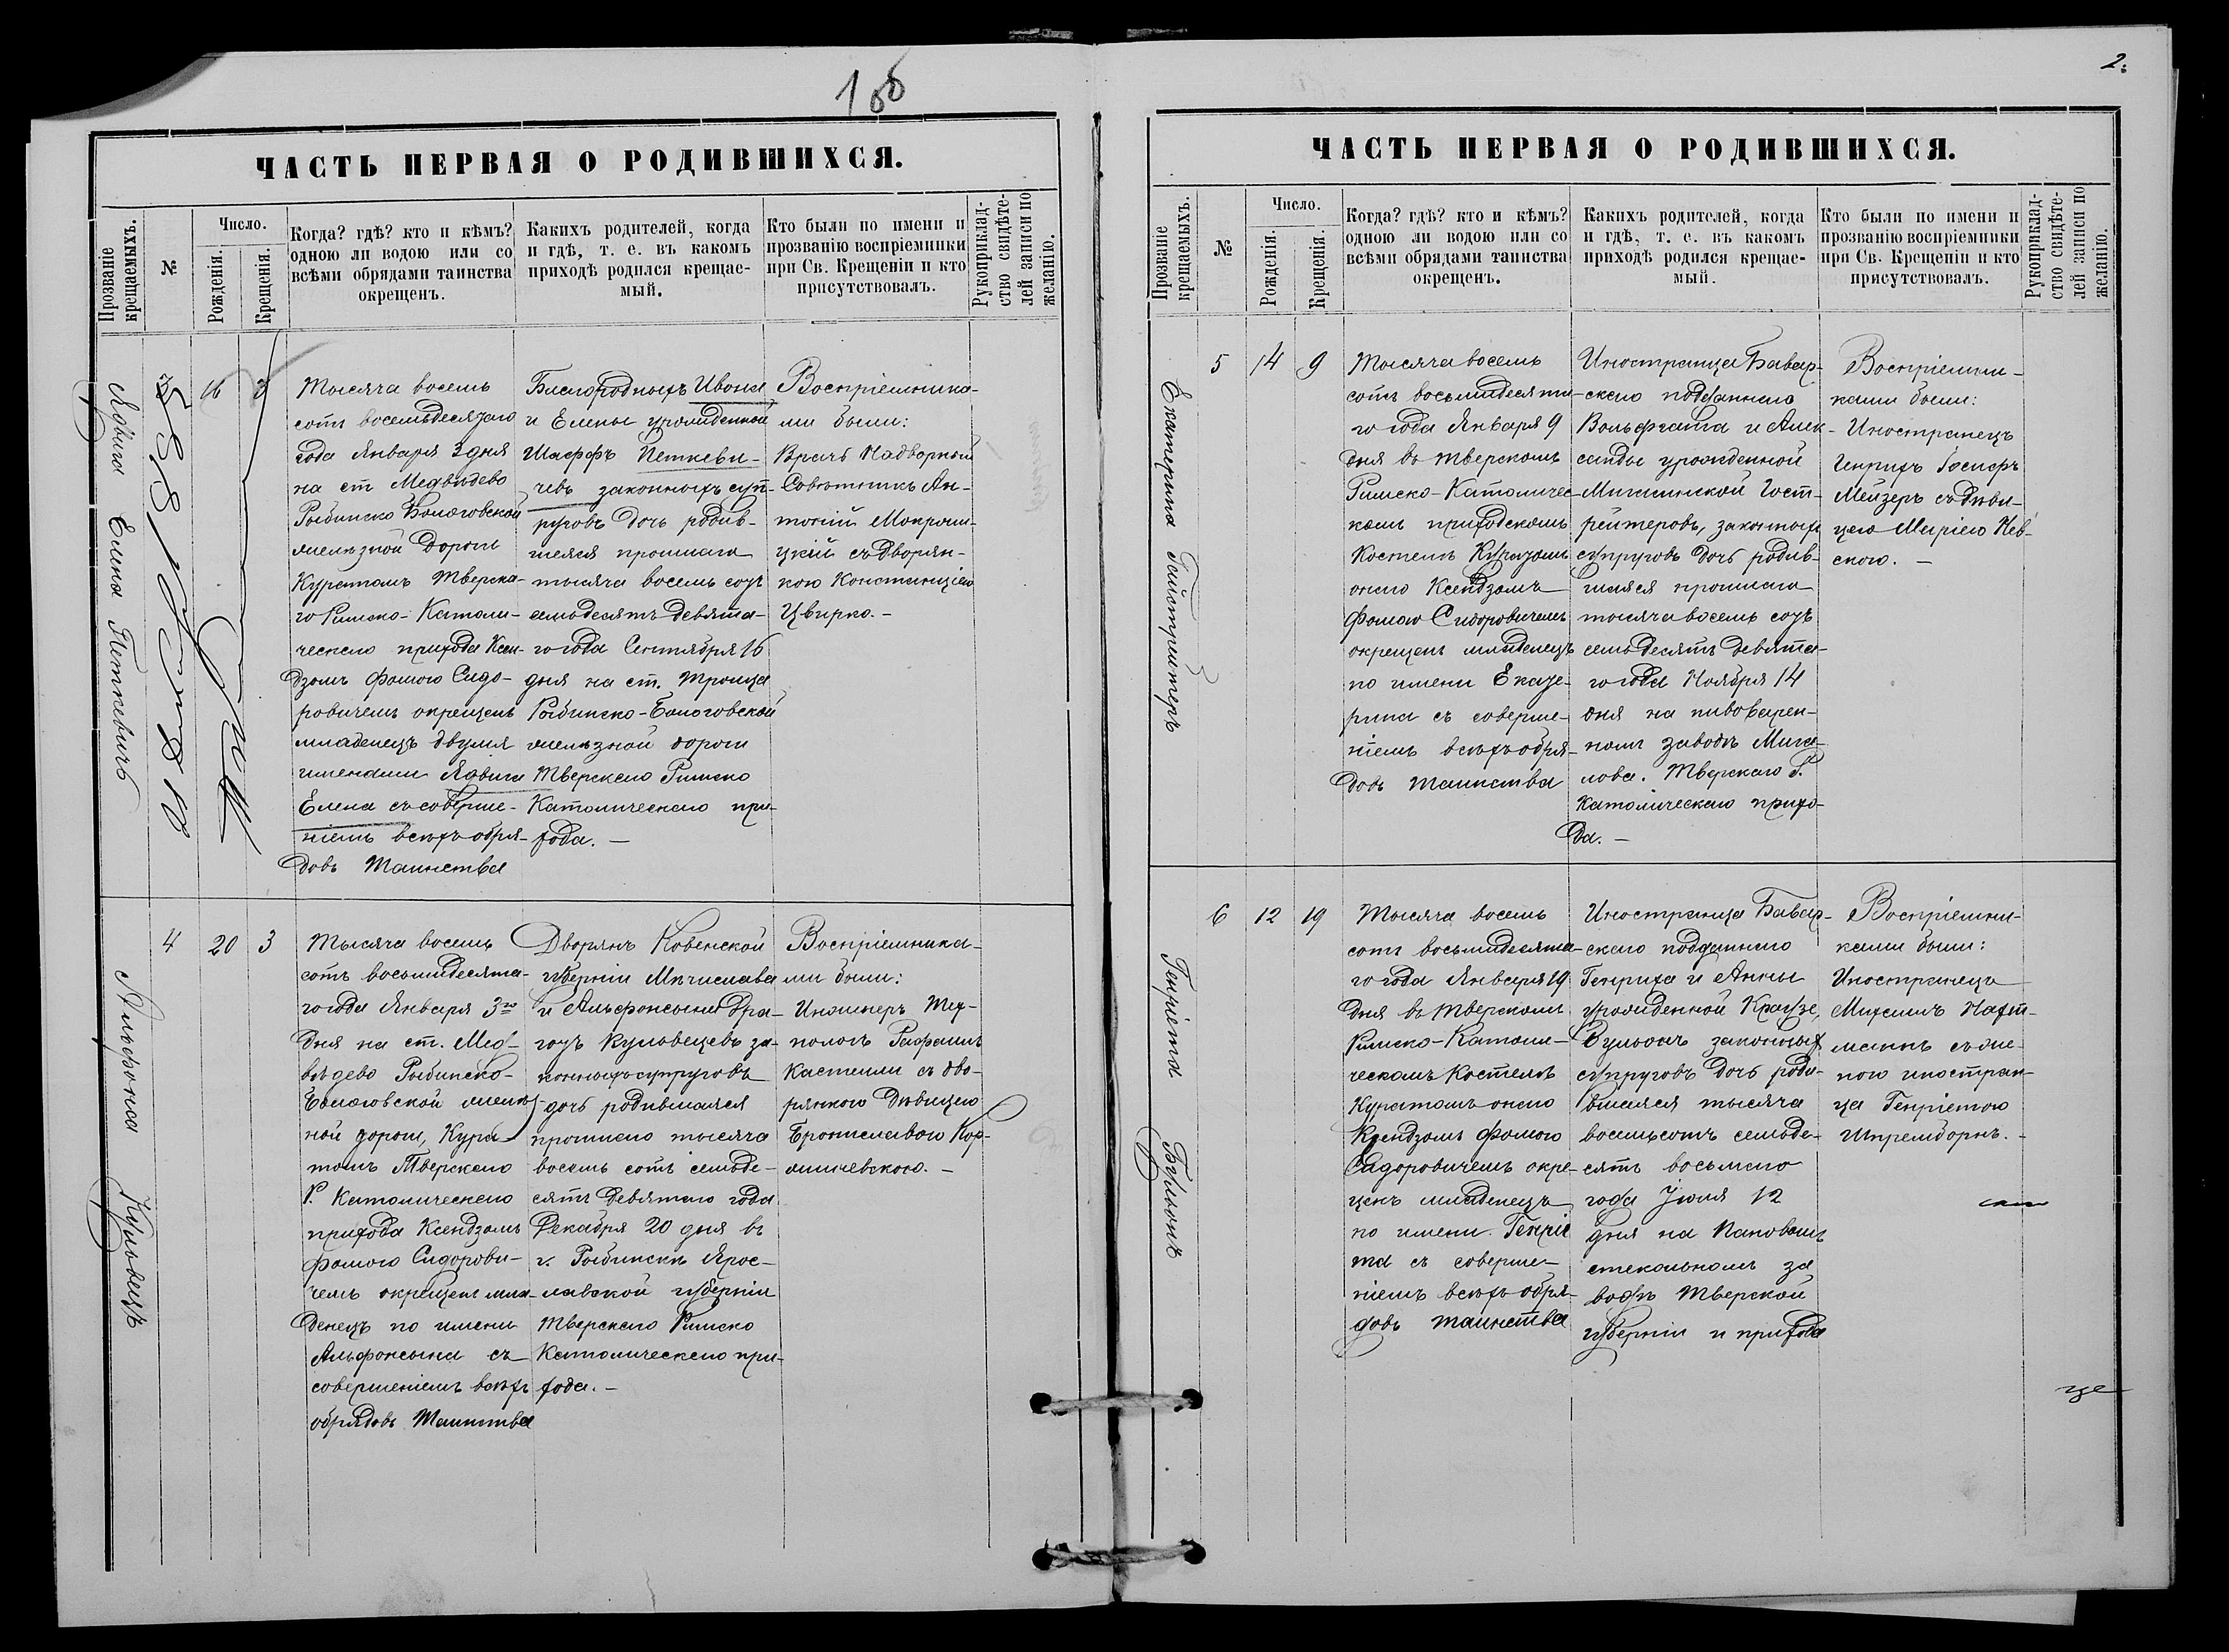 100
ЧАСТЬ ПЕРВАЯ О РОДИВШИХСЯ.
Прозваніе крещаемыхъ.
№
Число.
Рожденія.
Крещенія.
Когда? гдѣ? кто и кѣмъ?
одною ли водою или со
всѣми обрядами таинства
окрещенъ.
Какихъ родителей, когда
и гдѣ, т. е. въ какомъ
приходѣ родился крещае-
мый.
Кто были по имени и
прозванію воспріемники
при Св. Крещеніи и кто
присутствовалъ.
Рукоприклад-
ство свидѣте-
лей записи по
желанію.
Ядвига Елена Петкевичъ
3
16
3
Тысяча восемь
сотъ восемьдесятаго
года Января 3 дня
на ст Медвѣдево
Рыбинско Бологовской
желѣзной дороги
Куратомъ Тверска-
го Римско-Католи-
ческаго прихода Ксен-
дзомъ Фомою Сидо-
ровичемъ окрещенъ
младенецъ двумя
именами Ядвига
Елена съ соверше-
ніемъ всѣхъ обря-
довъ Таинства
Благородныхъ Ивона
и Елены урожденной
Шаффъ Петкеви-
чевъ законныхъ суп-
руговъ дочь родив-
шаяся прошлаго
тысяча восемь сотъ
семьдесятъ девята-
го года Сентября 16
дня на ст. Троица
Рыбинско-Бологовской
желѣзной дороги
Тверскаго Римско
Католическаго при-
хода. —
Воспріемника-
ми были:
Врачъ Надворный
Совѣтникъ Ан-
тоній Мокржи-
цкій съ Дворян-
кою Констанціею
Цвирко. -
Альфонсина Кульвецъ
4
20
3
Тысяча восемь
сотъ восьмидесята-
го года Января 3го
дня на ст. Мед-
вѣдево Рыбинско-
Бологовской желѣз-
ной дороги, Кура-
томъ Тверскаго
Р. Католическаго
прихода Ксендзомъ
Фомою Сидорови-
чемъ окрещенъ мла-
денецъ по имени
Альфонсина съ
совершеніемъ всѣхъ
обрядовъ Таинства
Дворянъ Ковенской
губерніи Мѣчислава
и Альфонсины Дра-
гоцъ Кульвецевъ за-
конныхъ супруговъ
дочь родившаяся
прошлаго тысяча
восемь сотъ семьде-
сятъ девятаго года
Декабря 20 дня въ
г. Рыбинскѣ Ярос-
лавской губерніи
Тверскаго Римско
Католическаго при-
хода. —
Воспріемника-
ми были:
Инженеръ Тех-
нологъ Рафаилъ
Кастелли съ дво-
рянкою Дѣвицею
Брониславою Кор-
жиневскою. —
2.
ЧАСТЬ ПЕРВАЯ О РОДИВШИХСЯ.
Прозваніе крещаемыхъ.
№
Число.
Рожденія.
Крещенія.
Когда? гдѣ? кто и кѣмъ?
одною ли водою или со
всѣми обрядами таинства
окрещенъ.
Какихъ родителей, когда
и гдѣ, т. е. въ какомъ
приходѣ родился крещае-
мый.
Кто были по имени и
прозванію воспріемники
при Св. Крещеніи и кто
присутствовалъ.
Рукоприклад-
ство свидѣте-
лей записи по
желанію.
Екатерина Гострейтеръ
5
14
9
Тысяча восемь
сотъ восьмидесята-
го года Января 9
дня въ Тверскомъ
Римско-Католичес-
комъ приходскомъ
Костелѣ Куратомъ
онаго Ксендзомъ
Фомою Сидоровичемъ
окрещенъ младенецъ
по имени Екате-
рина съ соверше-
ніемъ всѣхъ обря-
довъ Таинства
Иностранца Бавар-
скаго подданнаго
Вольфганга и Алек-
сандры урожденной
Мишинской Гост-
рейтеровъ, законныхъ
супруговъ дочь родив-
шаяся прошлаго
тысяча восемь сотъ
семьдесятъ девята-
го года Ноября 14
дня на пивоварен-
номъ заводѣ Мига-
лова. Тверскаго Р.
Католическаго прихо-
да. —
Воспріемни-
ками были:
Иностранецъ
Генрихъ Іосифъ
Мейзеръ съ дѣви-
цею Маріею Нев-
скою. —
Генріета Бульонъ
6
12
19
Тысяча восемь
сотъ восьмидесята-
го года Января 19
дня въ Тверскомъ
Римско-Католи-
ческомъ Костелѣ
Куратомъ онаго
Ксендзомъ Фомою
Сидоровичемъ окре-
щенъ младенецъ
по имени Генріе
та съ соверше-
ніемъ всѣхъ обря-
довъ таинства
Иностранца Бавар-
скаго подданнаго
Генриха и Анны
урожденной Краузе,
Бульонъ законныхъ
супруговъ дочь роди-
вшаяся тысяча
восемьсотъ семьде-
сятъ восьмаго
года Іюля 12
дня на Пановомъ
стекольномъ за
водѣ Тверской
губерніи и прихода
Воспріемни-
ками были:
Иностранца
Михаилъ Нахт-
манъ съ же-
ною иностран-
ца Генріетою
Шпрембортъ. -